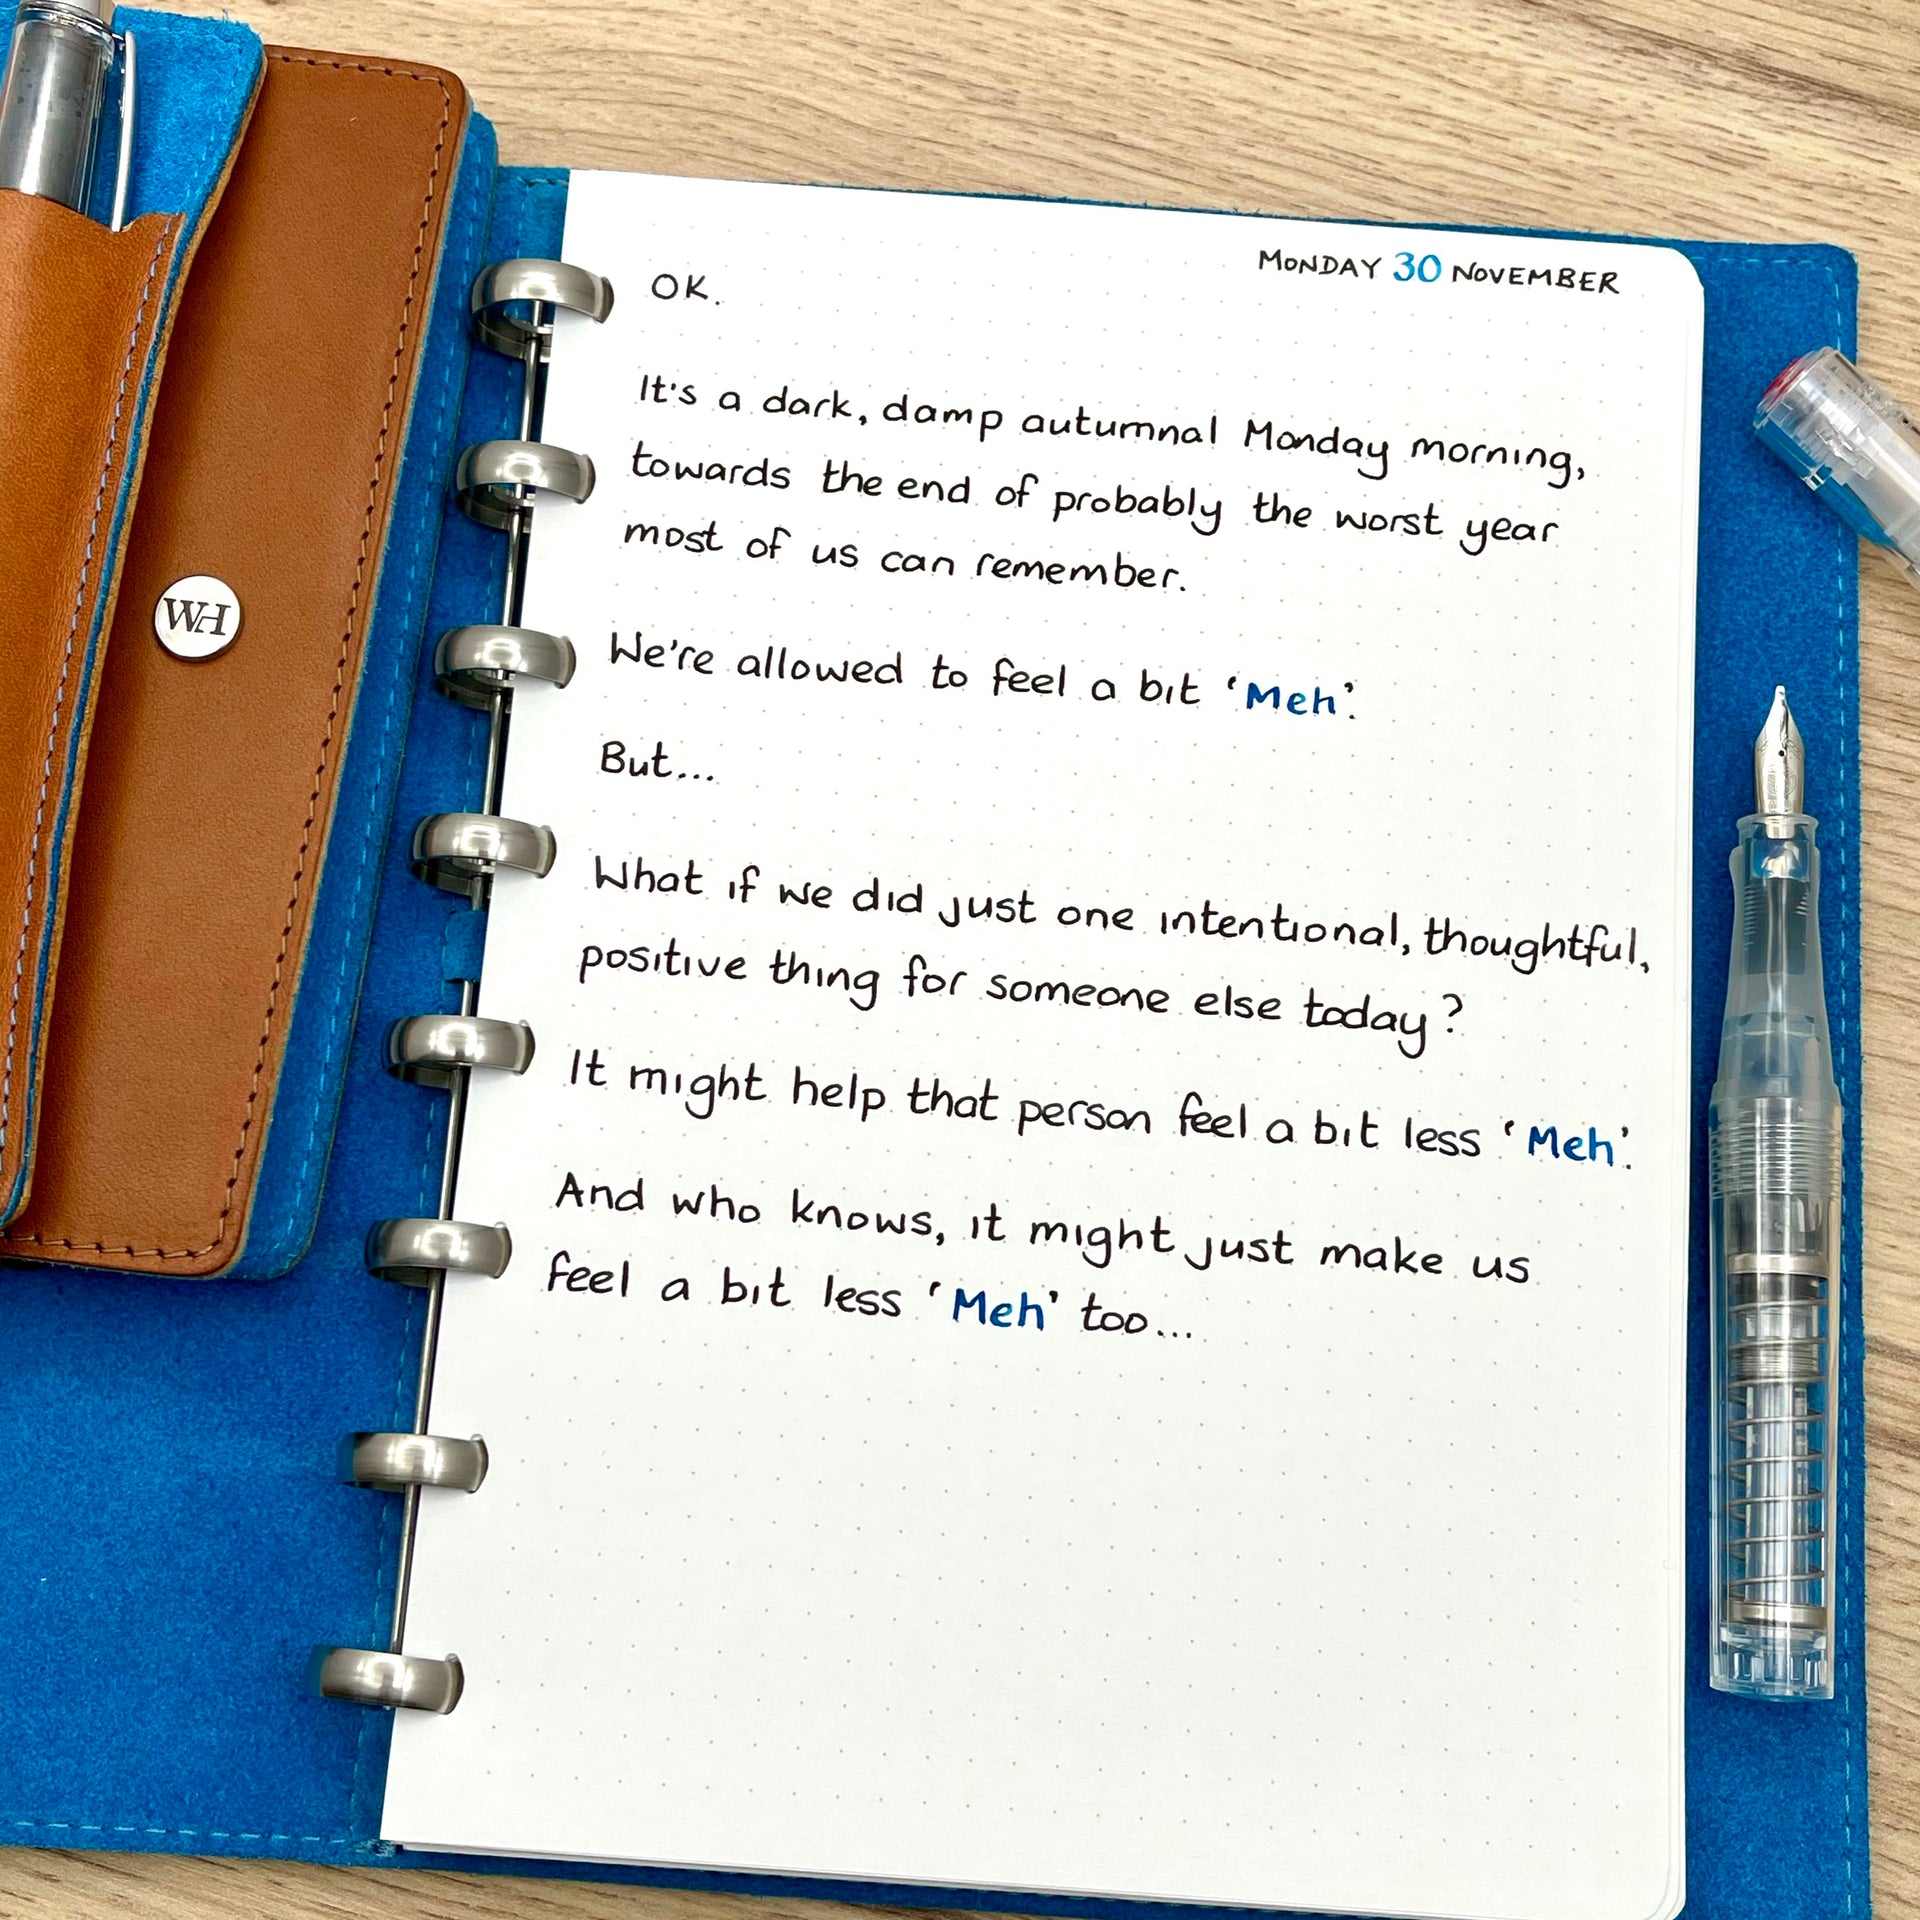 WH
MONDAY 30 NOVEMBER
OK.
It's a dark, damp autumnal Monday morning,
towards the end of probably the worst year
most of us can remember.
We're allowed to feel a bit 'Meh'.
But...
What if we did just one intentional, thoughtful,
positive thing for someone else today?
It might help that person feel a bit less 'Meh'.
And who knows, it might just make us
feel a bit less 'Meh' too...